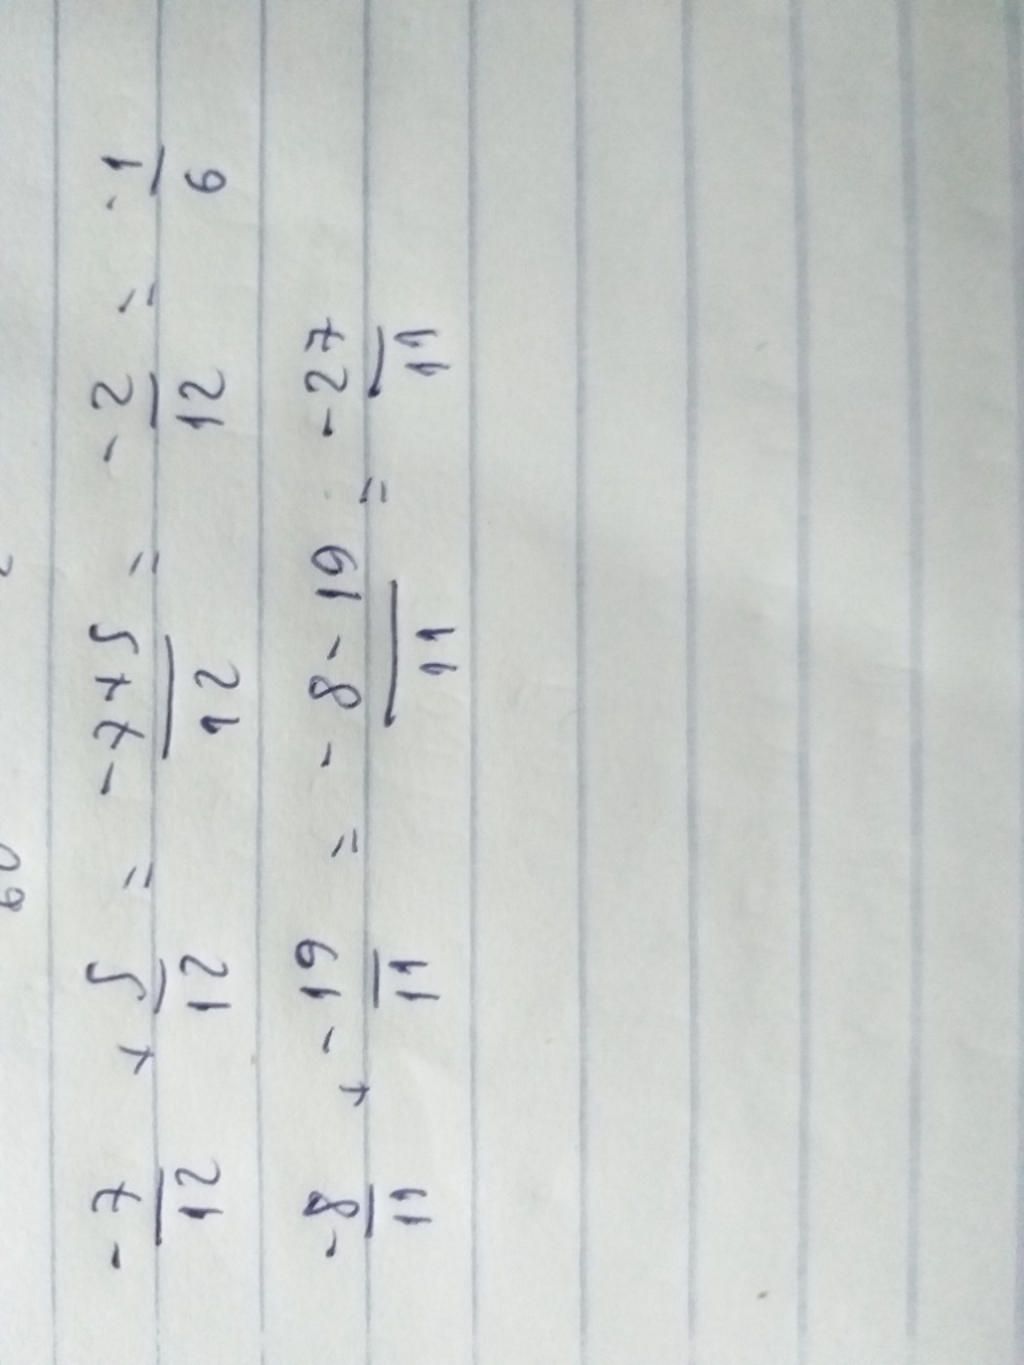 -7/12 + 5/12 = -7+5/12 = -2/12 = -1/6
-8/11 + -19/11 = -8-19/11 = -27/11